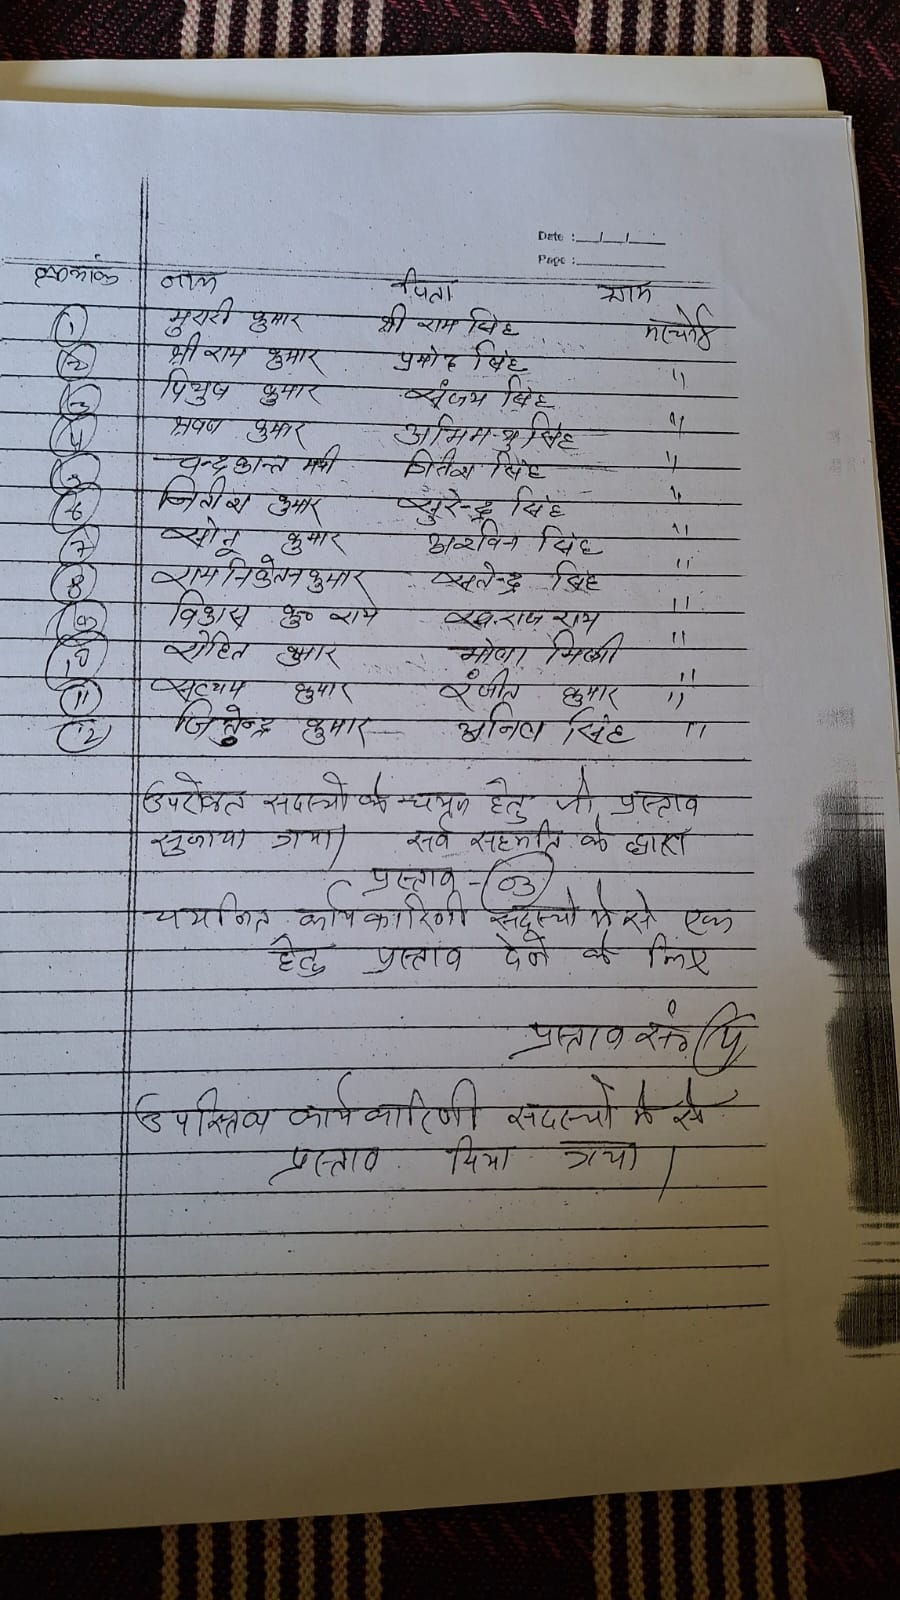 Date :__/__/__
Page :______
क्रमांक नाम पिता ग्राम
1 मुरारी कुमार श्री राम सिंह
2 श्री राम कुमार प्रमोद सिंह "
3 पियुष कुमार संजय सिंह
4 श्रवण कुमार अभिमन्यु सिंह "
5 चन्द्रकान्त नितीश सिंह "
6 नितीश कुमार सुरेन्द्र सिंह "
7 सोनू कुमार अरविन्द सिंह "
8 राम निकेतन कुमार सतेन्द्र सिंह "
9 विकास कु० राम स्व. राज राम "
10 रोहित कुमार "
11 सत्यम कुमार रंजीत कुमार "
12 जितेन्द्र कुमार अनिल सिंह "
उपरोक्त सदस्यो के चयन हेतु जो प्रस्ताव
सुझाया गया। सर्व सहमति के द्वारा
प्रस्ताव - 03
चयनित कार्यकारिणी सदस्यो मे से एक
हेतु प्रस्ताव देने के लिए
प्रस्ताव सं०
उपस्थित कार्यकारिणी सदस्यो मे से
प्रस्ताव दिया गया।